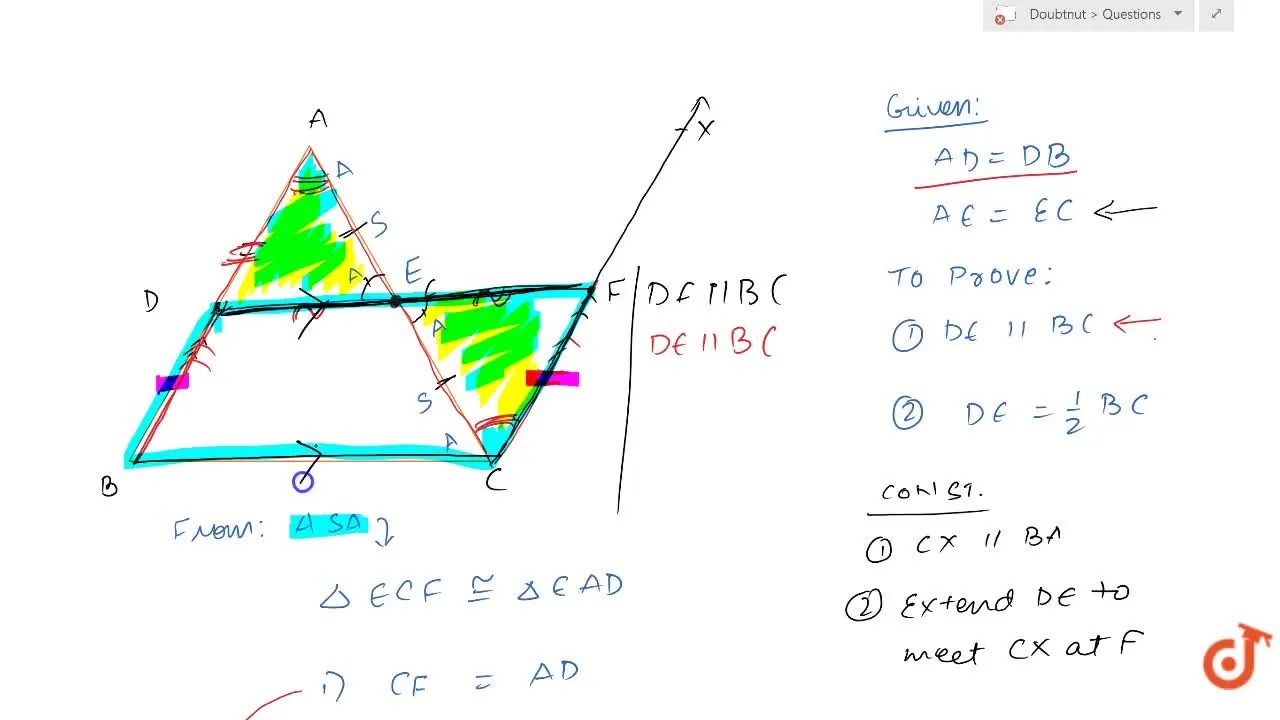 Doubtnut > Questions
A
X
A
S
A
E
D
F
A
S
A
B
C
DF || BC
DE || BC
Given:
AD = DB
AE = EC
To Prove:
① DE || BC
② DE = 1/2 BC
CONST.
① CX || BA
② Extend DE to
meet CX at F
From: ASA
Δ ECF ≅ Δ EAD
1) CF = AD